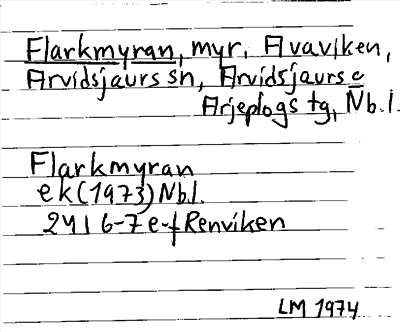 Flarkmyran, myr, Avaviken,
Arvidsjaurs sn, Arvidsjaurs o
Arjeplogs tg, Nb.l.
Flarkmyran
ek (1973) Nb.l.
24I 6-7 e-f Renviken
LM 1974